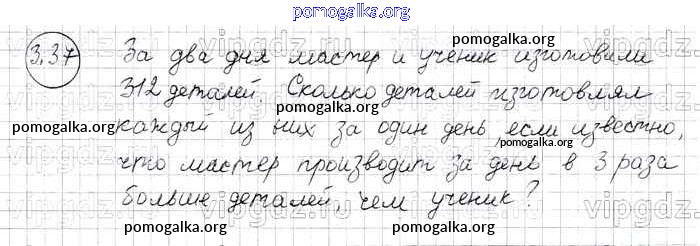 pomogalka.org
3.37 За два дня мастер и ученик изготовили
pomogalka.org
312 деталей. Сколько деталей изготовлял
pomogalka.org
каждый из них за один день, если известно,
pomogalka.org pomogalka.org
что мастер производит за день в 3 раза
pomogalka.org
больше деталей, чем ученик?
pomogalka.org pomogalka.org